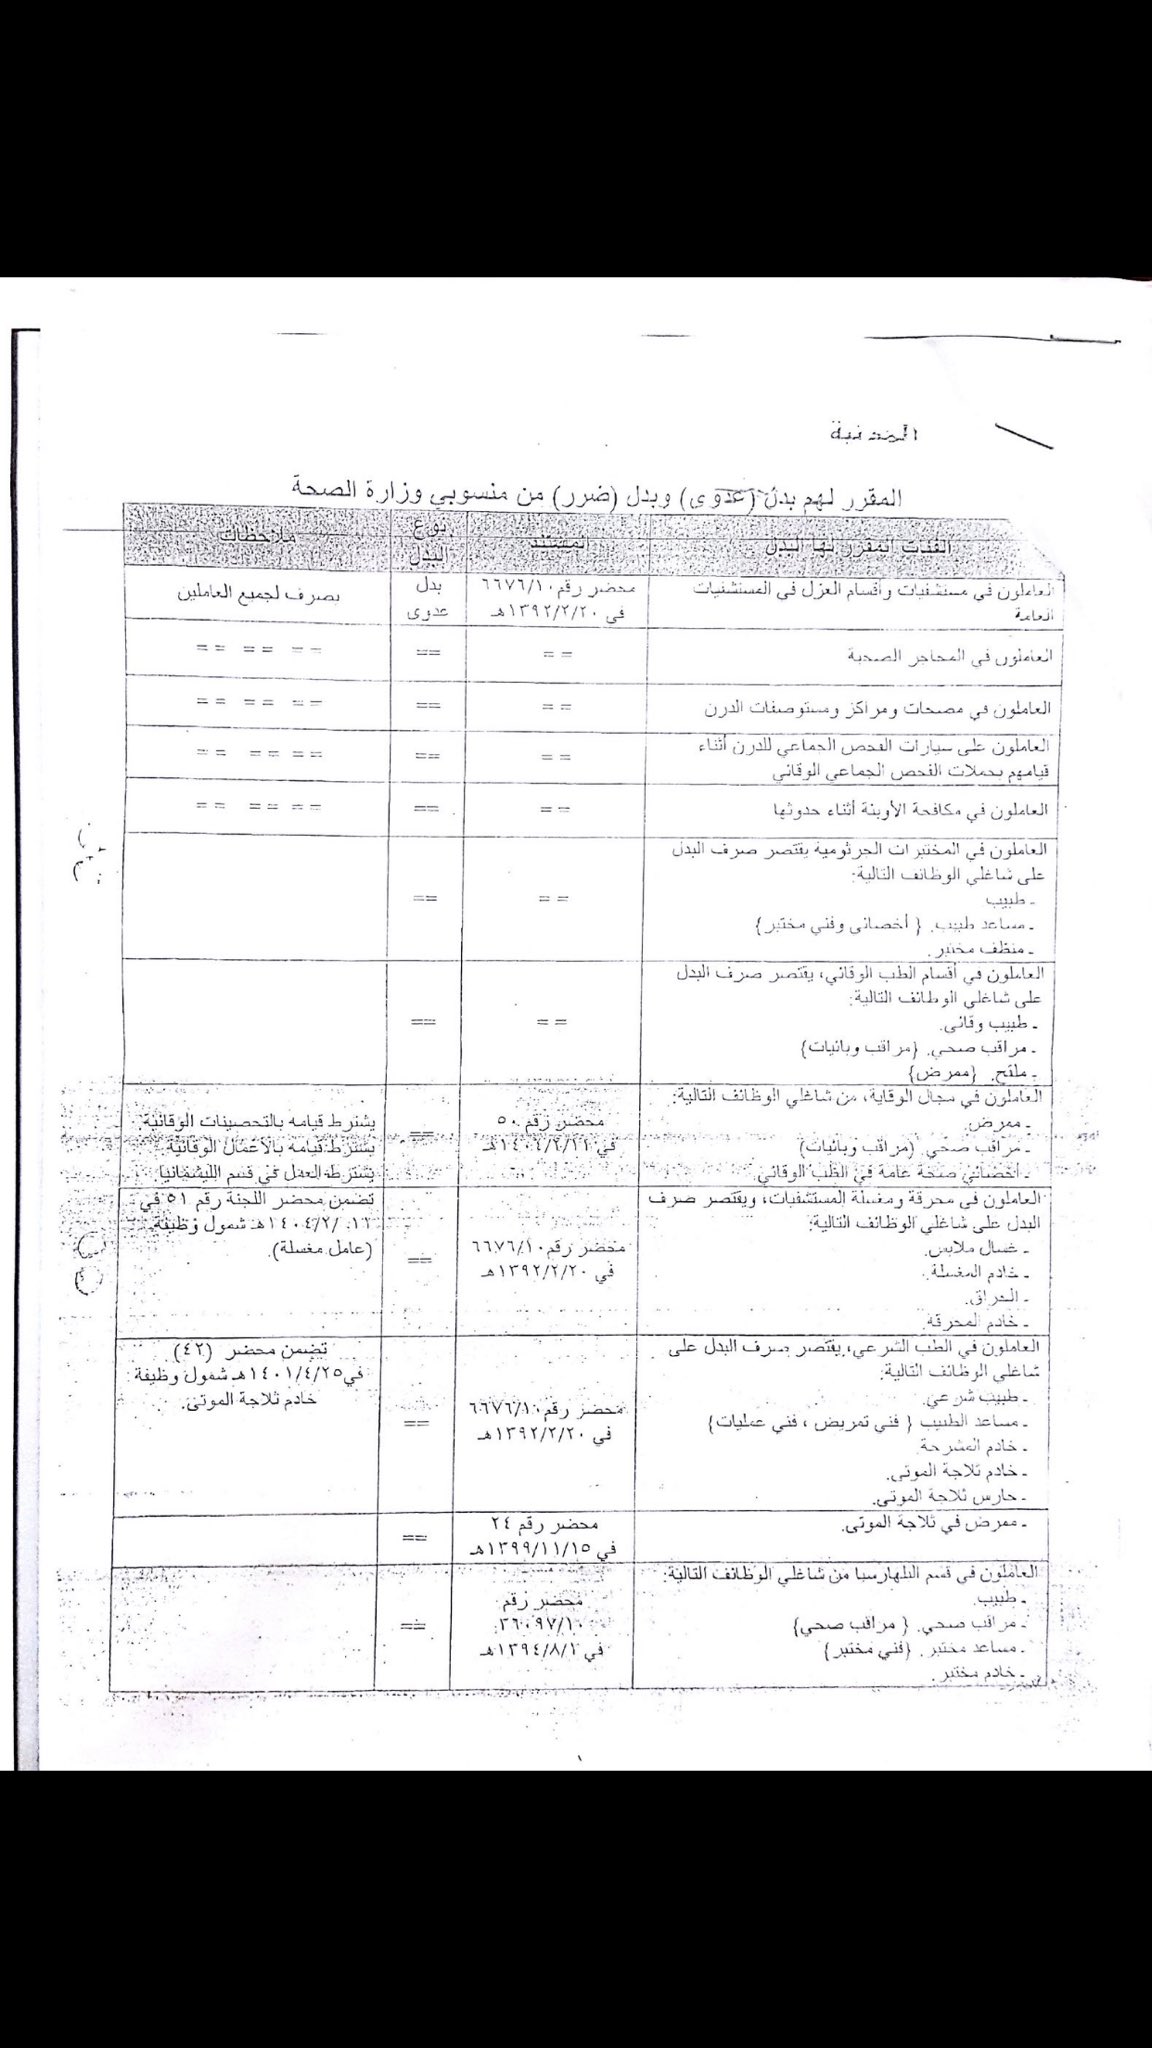 المدنية
المقرر لهم بدل (عدوى) وبدل (ضرر) من منسوبي وزارة الصحة
الفئات المقرر لها البدل
المستند
نوع
البدل
ملاحظات
العاملون في مستشفيات وأقسام العزل في المستشفيات
العامة
محضر رقم ٦٦٧٦/١٠
في ١٣٩٢/٢/٢٠هـ
بدل
عدوى
يصرف لجميع العاملين
العاملون في المحاجر الصحية
==
==
== == ==
العاملون في مصحات ومراكز ومستوصفات الدرن
==
==
== == ==
العاملون على سيارات الفحص الجماعي للدرن أثناء
قيامهم بحملات الفحص الجماعي الوقائي
==
==
== == ==
العاملون في مكافحة الأوبئة أثناء حدوثها
==
==
== == ==
العاملون في المختبرات الجرثومية يقتصر صرف البدل
على شاغلي الوظائف التالية:
- طبيب
- مساعد طبيب. { أخصائى وفني مختبر}
- منظف مختبر.
==
==
العاملون في أقسام الطب الوقائي، يقتصر صرف البدل
على شاغلي الوظائف التالية:
- طبيب وقائى.
- مراقب صحي. {مراقب وبائيات}
- ملقح. {ممرض}
==
==
العاملون في مجال الوقاية، من شاغلي الوظائف التالية:
- ممرض.
- مراقب صحي. (مراقب وبائيات)
- أخصائي صحة عامة في الطب الوقائي.
محضر رقم ٥٠
في ١٤٠٤/٢/١١هـ
==
يشترط قيامه بالتحصينات الوقائية
يشترط قيامه بالأعمال الوقائية.
يشترط العمل في قسم الليشمانيا
العاملون في محرقة ومغسلة المستشفيات، ويقتصر صرف
البدل على شاغلي الوظائف التالية:
- غسال ملابس.
- خادم المغسلة.
- الحراق.
- خادم المحرقة.
محضر رقم ٦٦٧٦/١٠
في ١٣٩٢/٢/٢٠هـ
==
تضمن محضر اللجنة رقم ٥١ في
١٤٠٤/٢/هـ شمول وظيفة
(عامل مغسلة).
العاملون في الطب الشرعي، يقتصر صرف البدل على
شاغلي الوظائف التالية:
- طبيب شرعي.
- مساعد الطبيب { فني تمريض ، فني عمليات}
- خادم المشرحة.
- خادم ثلاجة الموتى.
- حارس ثلاجة الموتى.
محضر رقم ٦٦٧٦/١٠
في ١٣٩٢/٢/٢٠هـ
==
تضمن محضر (٤٢)
في ١٤٠١/٤/٢٥هـ شمول وظيفة
خادم ثلاجة الموتى.
- ممرض في ثلاجة الموتى.
محضر رقم ٢٤
في ١٣٩٩/١١/١٥هـ
==
العاملون في قسم البلهارسيا من شاغلي الوظائف التالية:
- طبيب.
- مراقب صحي. { مراقب صحي}
- مساعد مختبر. {فني مختبر}
- خادم مختبر.
محضر رقم
٣٦٠٩٧/١٠
في ١٣٩٤/٨/١هـ
==
١